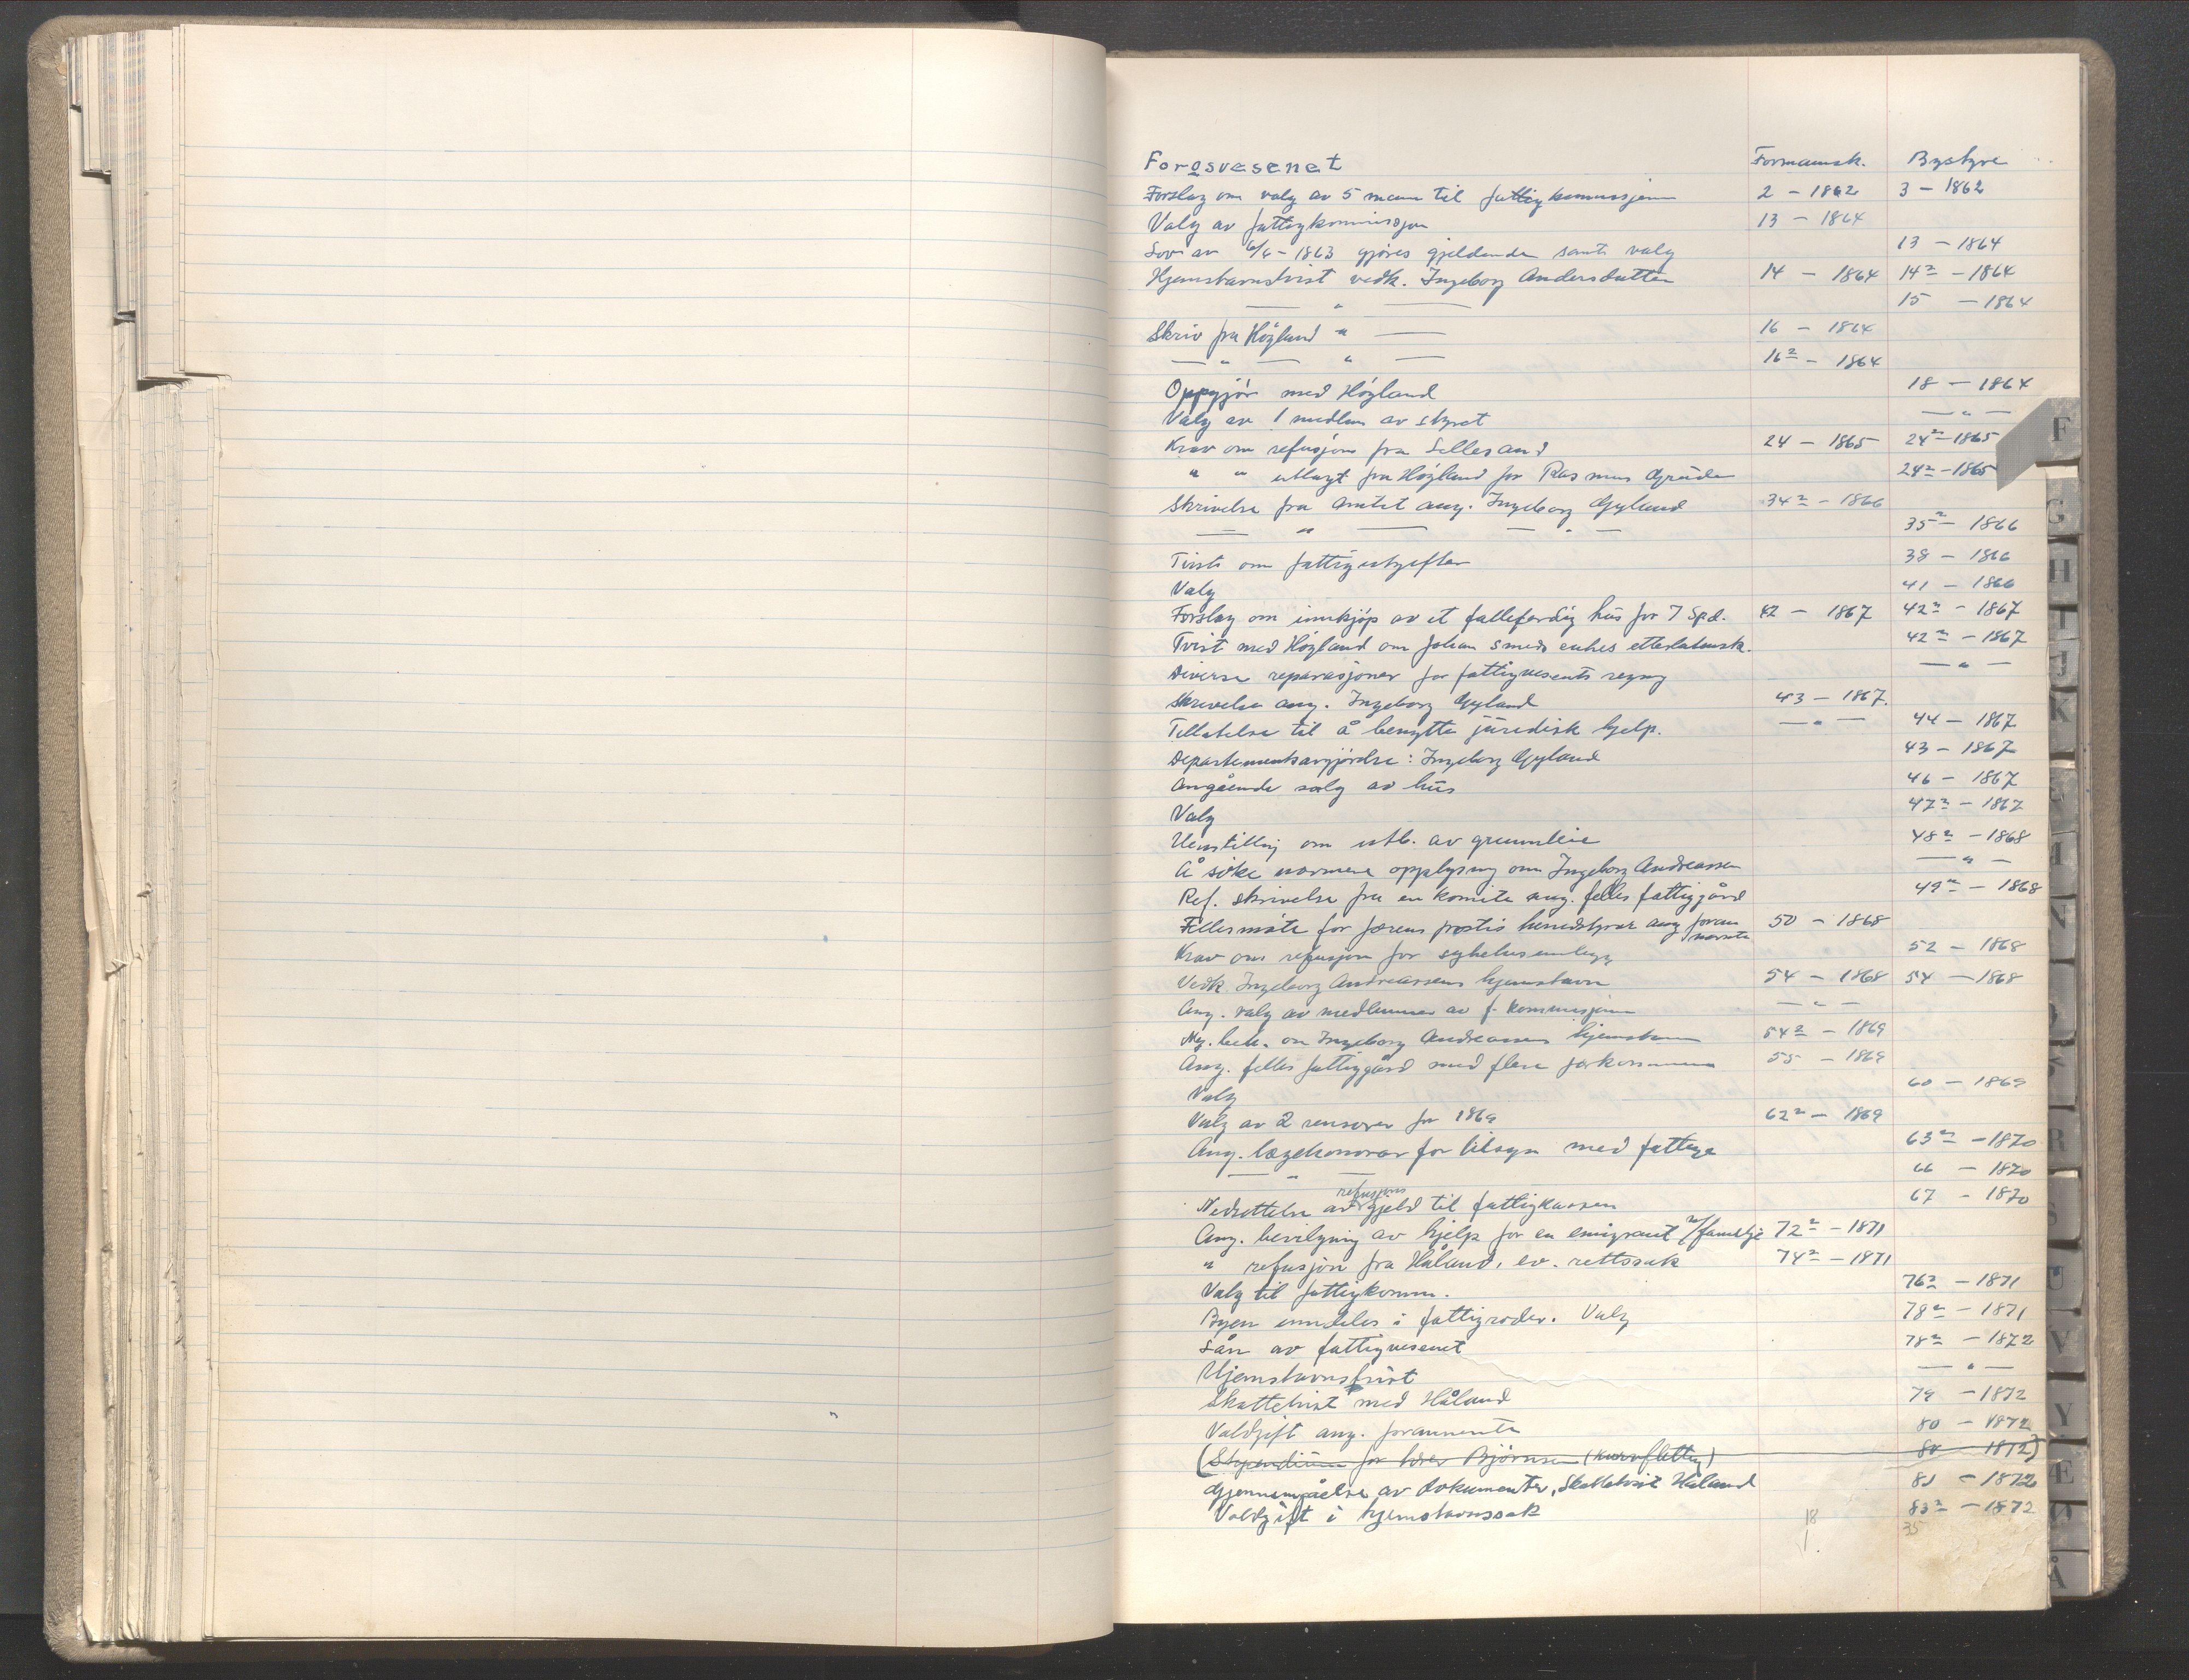 Forosvesenet Formannsk. Bystyre
Forslag om valg av 5 mann til fattigkommisjonen 2 - 1862 3 - 1862
Valg av fattigkommissjon 13 - 1864
Lov av 6/6 - 1863 gjøres gjeldende samt valg 13 - 1864
Hjemstavnstvist vedk. Ingeborg Andersdatter 14 - 1864 14² - 1864
— " — 15 - 1864
Skriv fra Høyland " — 16 - 1864
— " — " — 16² - 1864
Oppgjør med Høyland 18 - 1864
Valg av 1 medlem av styret — " —
Krav om refusjon fra Lillesand 24 - 1865 24² - 1865
" " utlagt fra Høyland for Rasmus 24² - 1865
Skrivelse fra Amtet ang. Ingeborg Gyland 34² - 1866
— " — — " — 35² - 1866
Tvist om fattigutgifter 38 - 1866
Valg 41 - 1866
Forslag om innkjøp av et falleferdig hus for 7 Spd. 42 - 1867 42² - 1867
Tvist med Høyland om Johan Smeds enkes etterlatensk. 42² - 1867
Diverse reparasjoner for fattigvesents regng — " —
Skrivelse ang. Ingeborg Gyland 43 - 1867.
Tillatelse til å benytte juridisk hjelp. — " — 44 - 1867
Departementsavgjørelse: Ingeborg Gyland 43 - 1867
Angående salg av hus 46 - 1867
Valg 47² - 1867
Henstilling om utb. av grunnleie 48² - 1868
Å söke nærmere opplysning om Ingeborg Andreassen — " —
Ref. skrivelse fra en komite ang. felles fattiggård 49² - 1868
Fellesmöte for Jærens prostis herredstyrer ang foran nevnte 50 - 1868
Krav om refusjon for sykehusinnlegg 52 - 1868
Vedk. Ingeborg Andreassens hjemstavn 54 - 1868 54 - 1868
Ang. valg av medlemmer av f. kommisjonen — " —
Ny. beh. om Ingeborg Andreassens hjemstavn 54² - 1869
Ang. felles fattiggård med flere forkommune 55 - 1869
Valg 60 - 1869
Valg av 2 revisorer for 1869 62² - 1869
Ang. lægehonorar for tilsyn med fattige 63² - 1870
— " — 66 - 1870
Nedsettelse av refusjons gjeld til fattigkassen 67 - 1870
Ang. bevilgning av hjelp for en emigrant m/familje 72² - 1871
" refusjon fra Håland, ev. rettssak 74² - 1871
Valg til fattigkomm. 76² - 1871
Byen inndeles i fattigroder. Valg 78² - 1871
Lån av fattigvesenet 78² - 1872
Hjemstavnstvist — " —
Skattetvist med Håland 79 - 1872
Voldgift ang. forannevnte 80 - 1872
(Stipendium for Bjørnsen (kurvfletting) 80 - 1872)
Gjennemgåelse av dokumenter, Skattetvist Håland 81 - 1872
Voldgift i hjemstavnssak 83² - 1872
18 35
F
G
H
I
J
K
L
N
R
S
U
V
Y
Æ
Ø
Å